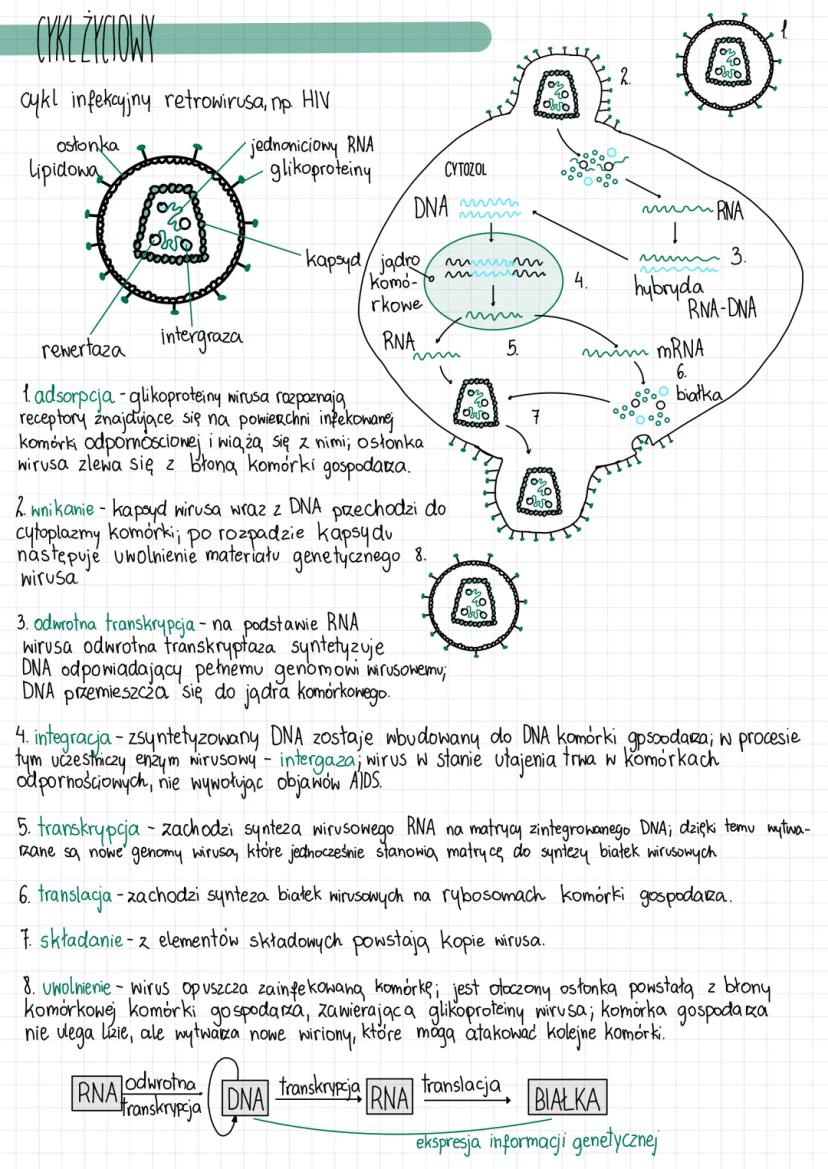 CYKL ŻYCIOWY
cykl infekcyjny retrowirusa, np. HIV
osłonka
lipidowa
jednoniciowy RNA
glikoproteiny
kapsyd
rewertaza
intergraza
1.
2.
CYTOZOL
DNA
RNA
3.
hybryda
RNA-DNA
jądro
komó-
rkowe
4.
RNA
5.
mRNA
6.
białka
7
8.
1. adsorpcja - glikoproteiny wirusa rozpoznają
receptory znajdujące się na powierzchni infekowanej
komórki odpornościowej i wiążą się z nimi; osłonka
wirusa zlewa się z błoną komórki gospodarza.
2. wnikanie - kapsyd wirusa wraz z DNA przechodzi do
cytoplazmy komórki; po rozpadzie kapsydu
następuje uwolnienie materiału genetycznego
wirusa
3. odwrotna transkrypcja - na podstawie RNA
wirusa odwrotna transkryptaza syntetyzuje
DNA odpowiadający pełnemu genomowi wirusowemu;
DNA przemieszcza się do jądra komórkowego.
4. integracja - zsyntetyzowany DNA zostaje wbudowany do DNA komórki gpsoodarza; w procesie
tym uczestniczy enzym wirusowy - intergaza; wirus w stanie utajenia trwa w komórkach
odpornościowych, nie wywołując objawów AIDS.
5. transkrypcja - zachodzi synteza wirusowego RNA na matrycy zintegrowanego DNA; dzięki temu wytwa-
rzane są nowe genomy wirusa, które jednocześnie stanowią matrycę do syntezy białek wirusowych
6. translacja - zachodzi synteza białek wirusowych na rybosomach komórki gospodarza.
7. składanie - z elementów składowych powstają kopie wirusa.
8. uwolnienie - wirus opuszcza zainfekowaną komórkę; jest otoczony osłonką powstałą z błony
komórkowej komórki gospodarza, zawierająca glikoproteiny wirusa; komórka gospodarza
nie ulega lizie, ale wytwarza nowe wiriony, które mogą atakować kolejne komórki.
RNA odwrotna transkrypcja DNA transkrypcja RNA translacja BIAŁKA
ekspresja informacji genetycznej